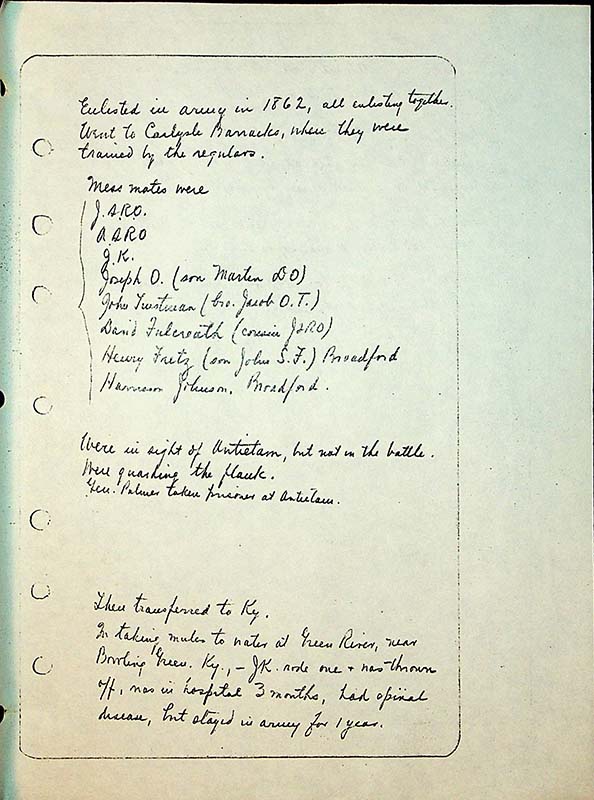 Enlisted in army in 1862, all enlisting together.
Went to Carlysle Barracks, where they were
trained by the regulars.
Mess mates were
J.S.R.O.
A.S.R.O
J.K.
Joseph O. (son Martin DO)
John (bro. Jacob O.T.)
David (cousin JSRO)
Henry Fretz (son John S.F.) Broadford
Harrison Johnson, Broadford.
Were in sight of Antietam, but not in the battle.
Were guarding the flank.
Gen. Palmer taken prisoner at Antietam.
Then transferred to Ky.
In taking mules to water at Green River, near
Bowling Green. Ky., - JK. rode one + was thrown
off, was in hospital 3 months, had spinal
disease, but stayed in army for 1 year.